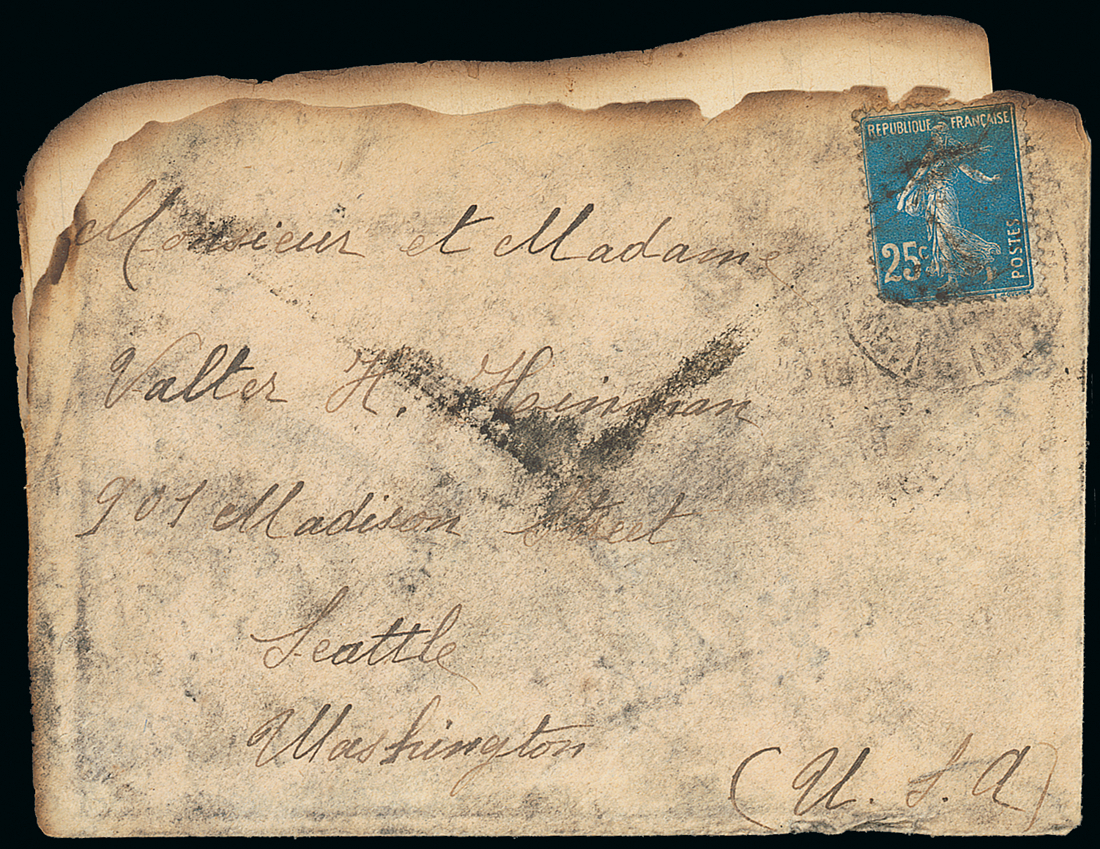 REPUBLIQUE FRANÇAISE
25c
POSTES
Monsieur et Madame
Valter H. Heinman
901 Madison Street
Seattle
Washington
(U. S. A)